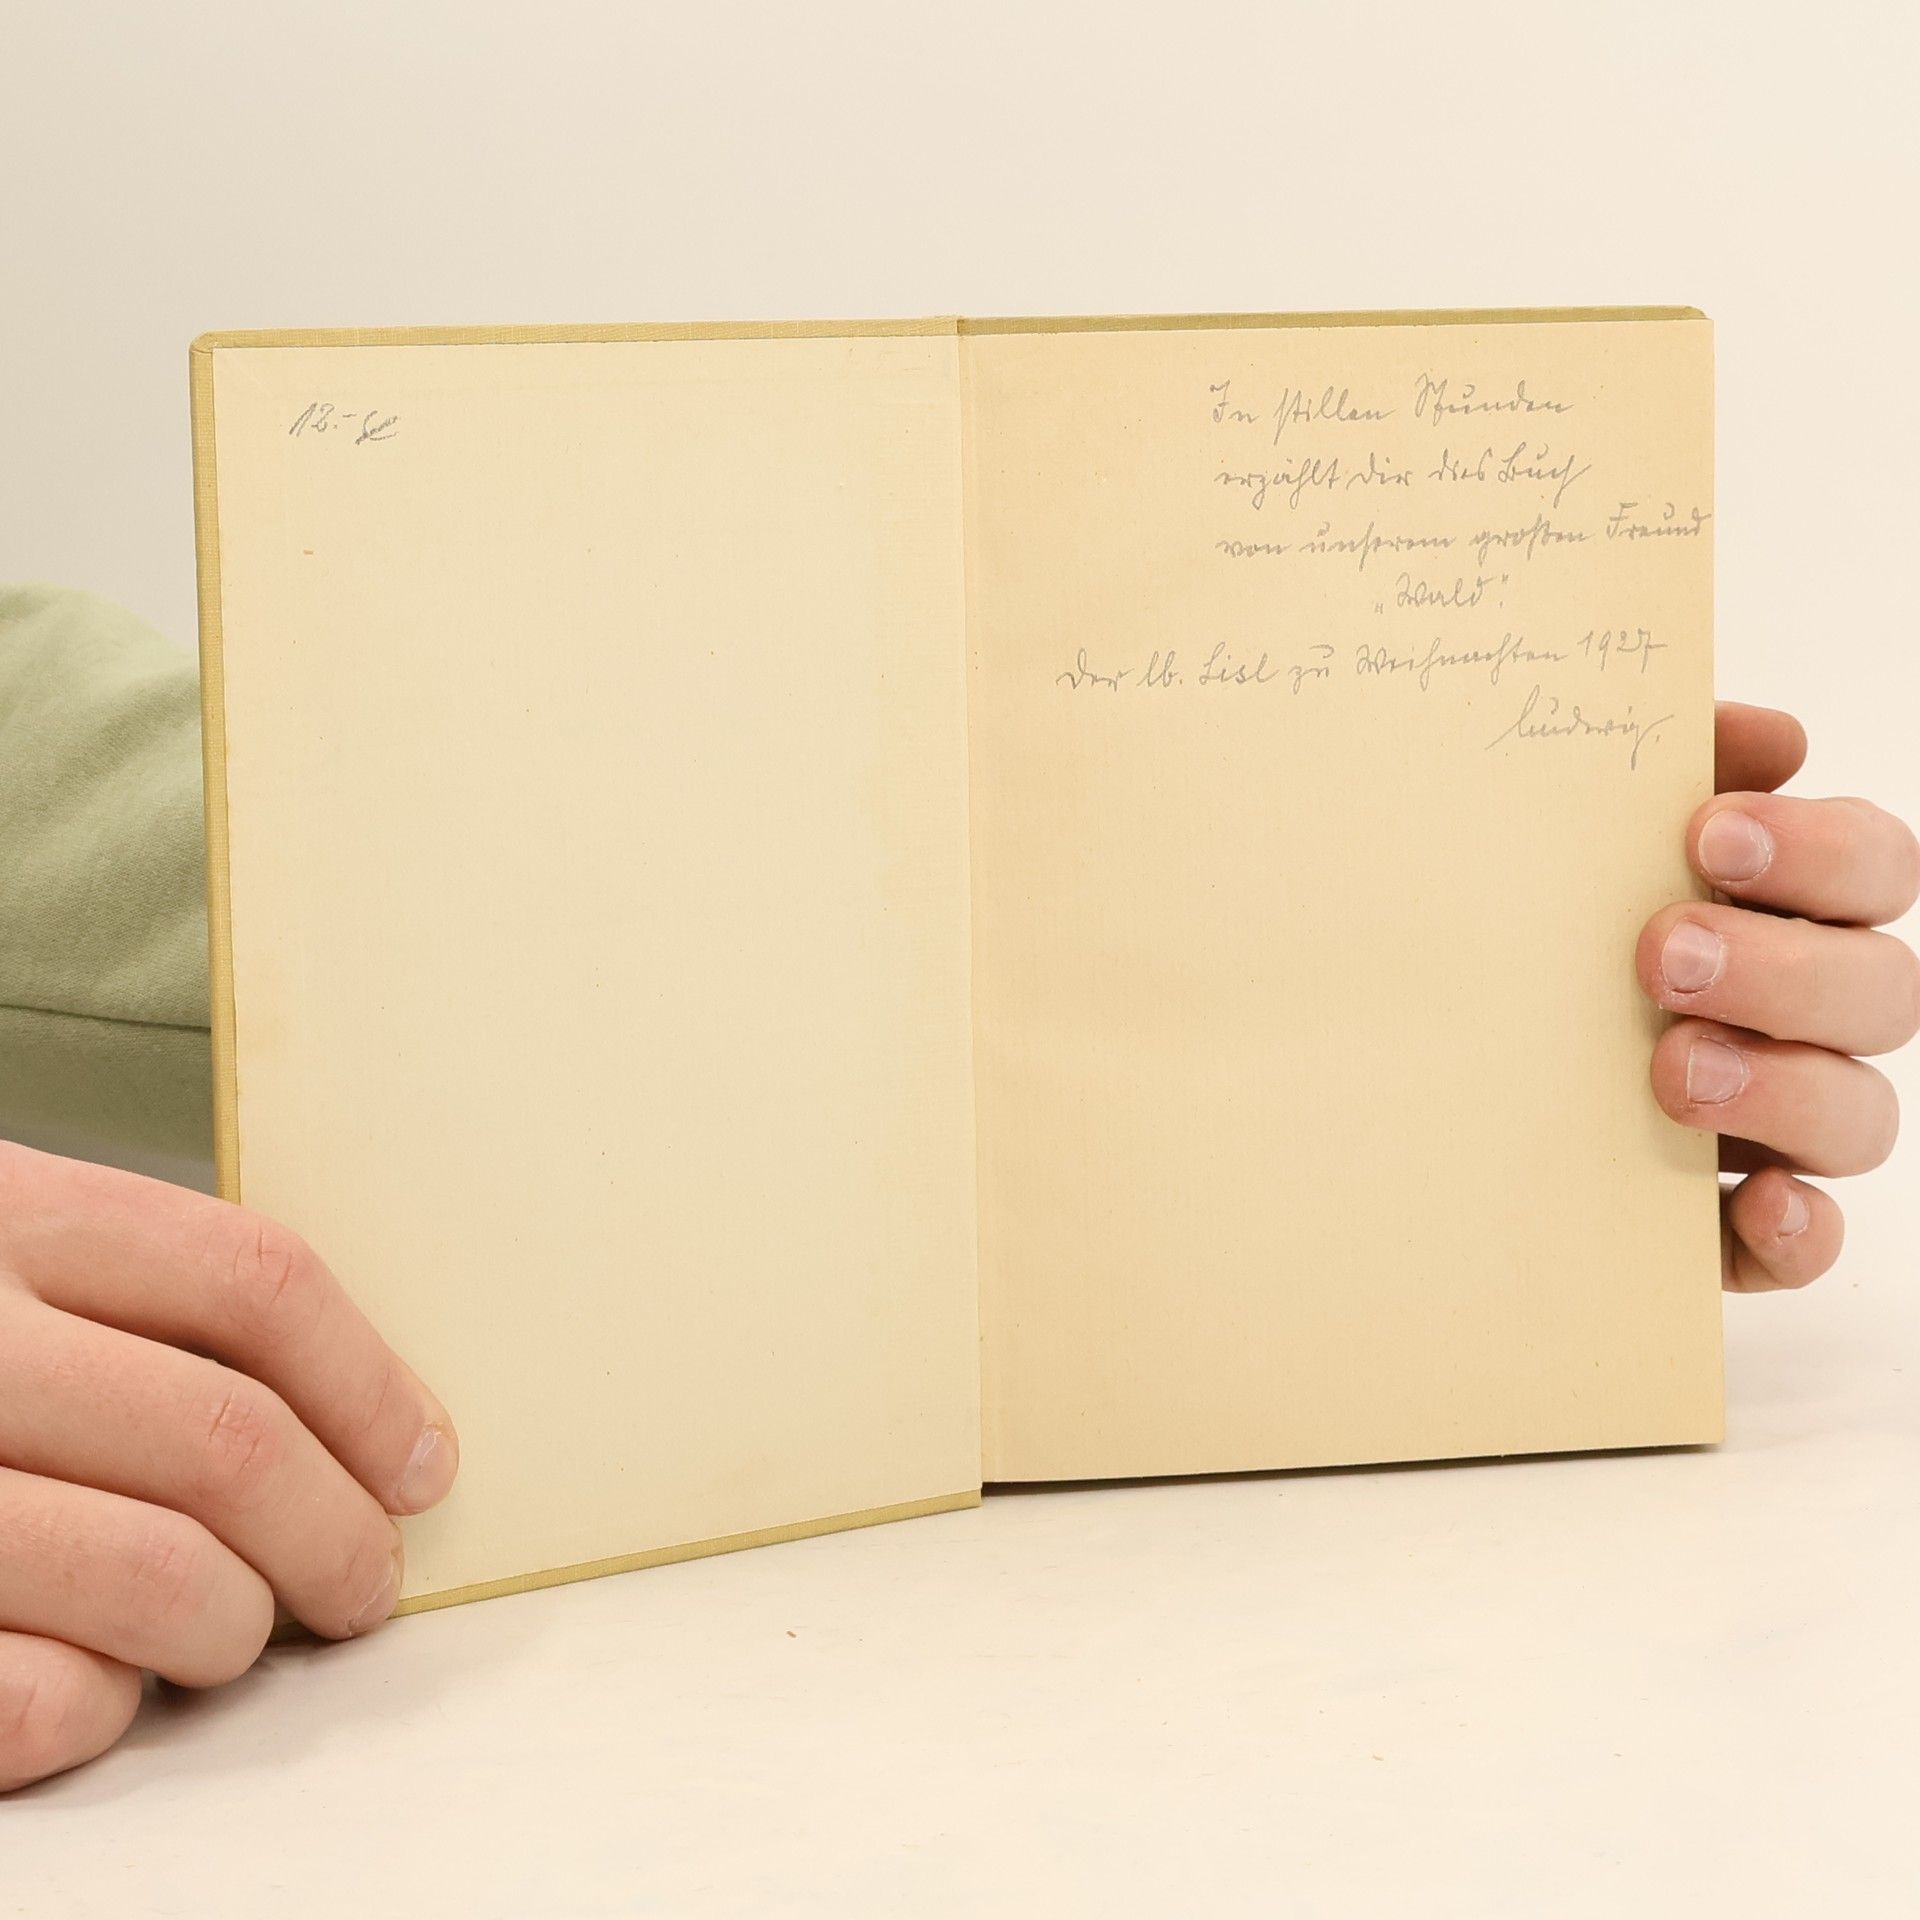 12.-
In stillen Stunden
erzählt Dir dies Buch
von unserem großen Freund
„Wald".
Der lb. Lisl zu Weihnachten 1927
Ludwig.